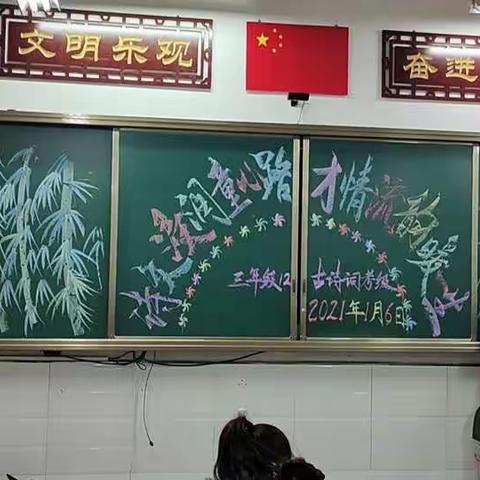 文明乐观
奋进
润童心路
才情
三年级12
古诗词考级
2021年1月6日